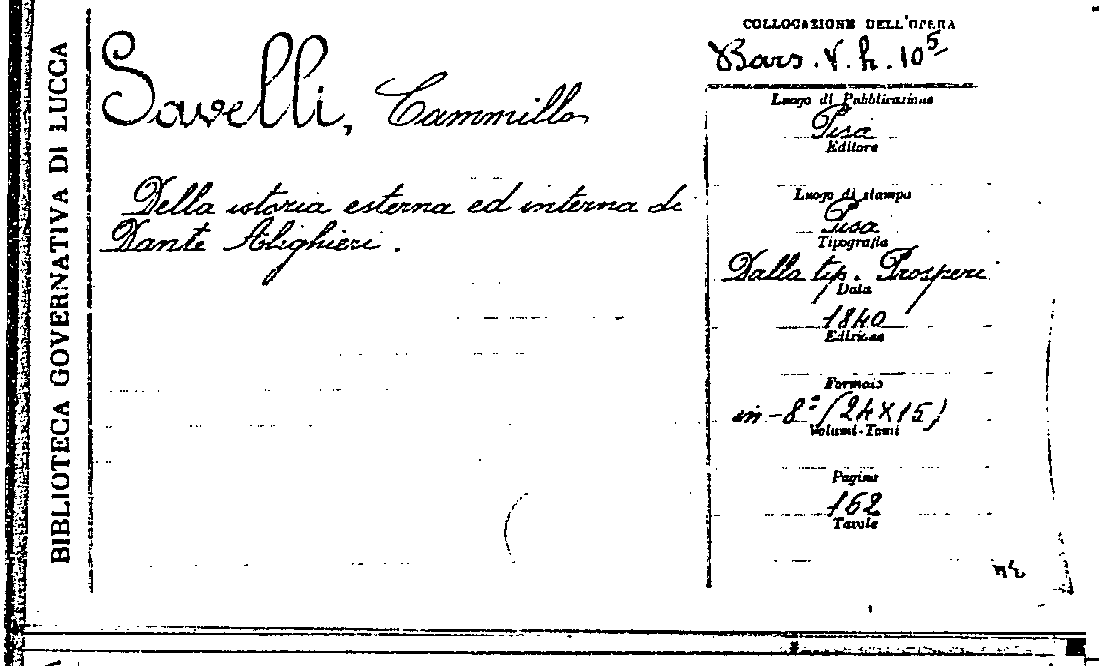 BIBLIOTECA GOVERNATIVA DI LUCCA
Savelli, Cammillo
Della istoria esterna ed interna di
Dante Alighieri.
COLLOCAZIONE DELL'OPERA
Bars. V. h. 10⁵
Luogo di Pubblicazione
Pisa
Editore
Luogo di stampa
Pisa
Tipografia
Dalla tip. Prosperi
Data
1840
Edizione
Formato
in-8º (24×15)
Volumi-Tomi
Pagine
162
Tavole